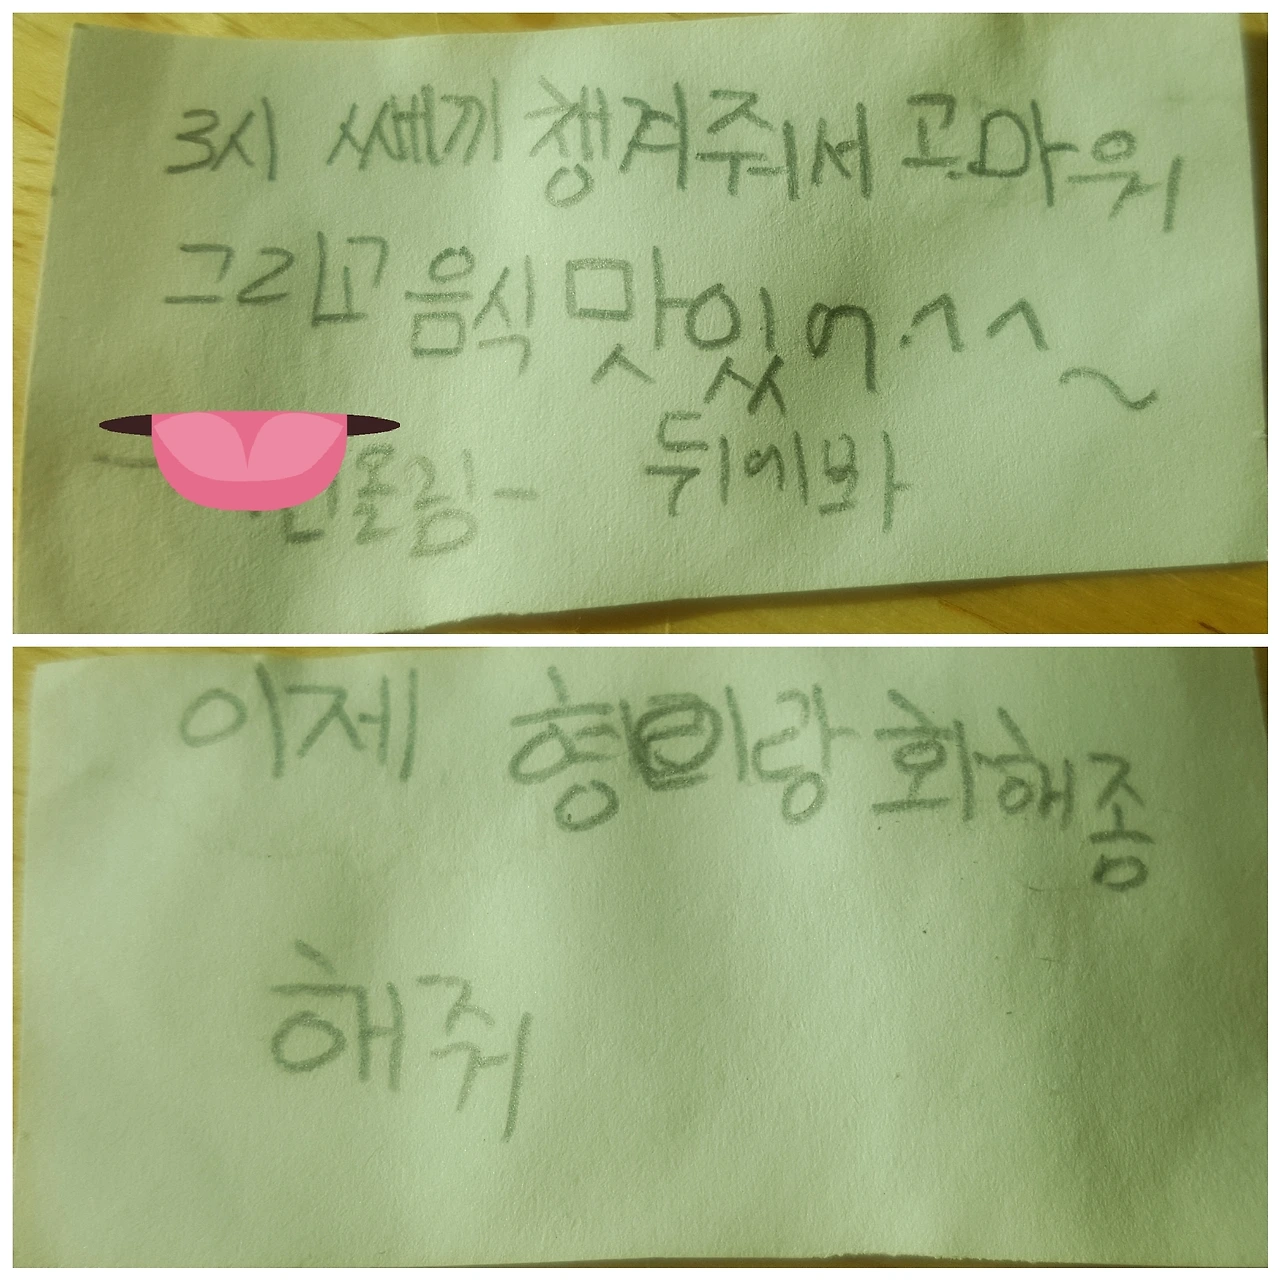 3시 쎄끼 챙겨줘서 고마워
그리고 음식 맛있어.^^~
올림-
뒤에봐
이제 형이랑 화해좀
해줘